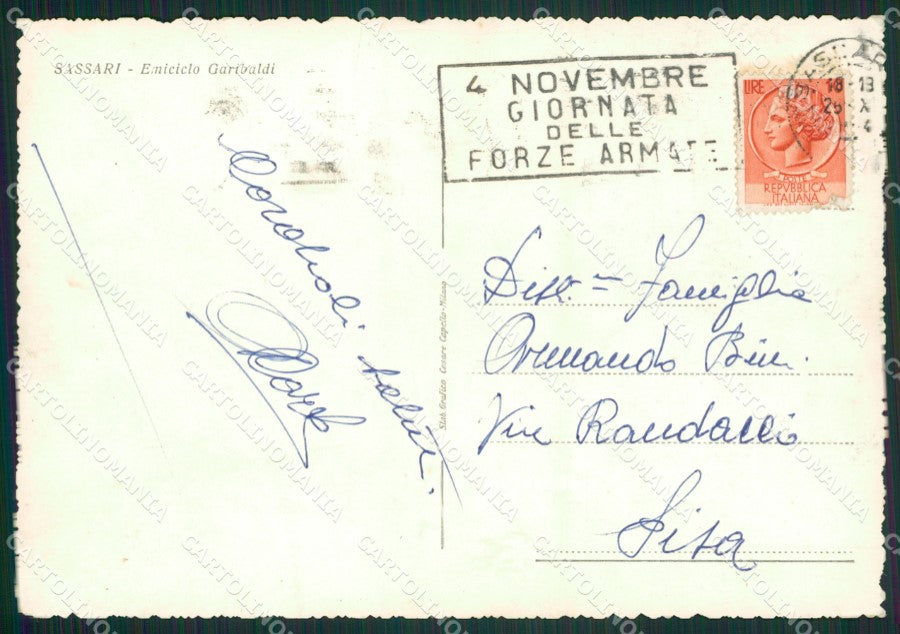 SASSARI - Emiciclo Garibaldi
4 NOVEMBRE
GIORNATA
DELLE
FORZE ARMATE
LIRE
POSTE
REPVBBLICA
ITALIANA
18-13
26 X
4
Cordiali saluti.
Stab. Grafico Cesare Capello-Milano
Dist. = Famiglia
Armando Bini.
Via Randacci
Pisa
CARTOLINOMANIA